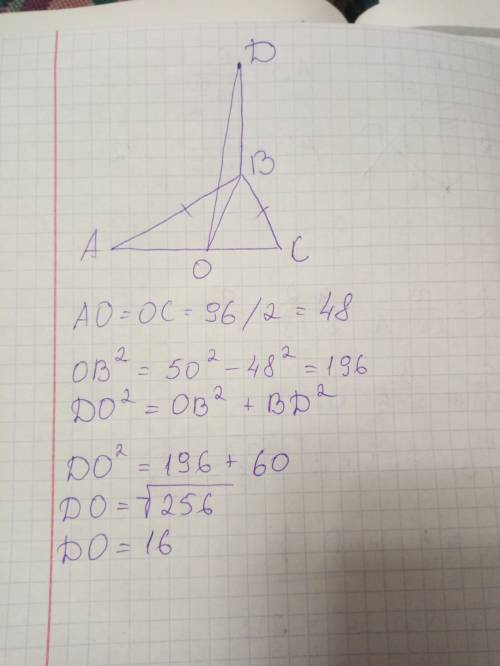 D
B
A
O
C
AO = OC = 96/2 = 48
OB² = 50² - 48² = 196
DO² = OB² + BD²
DO² = 196 + 60
DO = √256
DO = 16